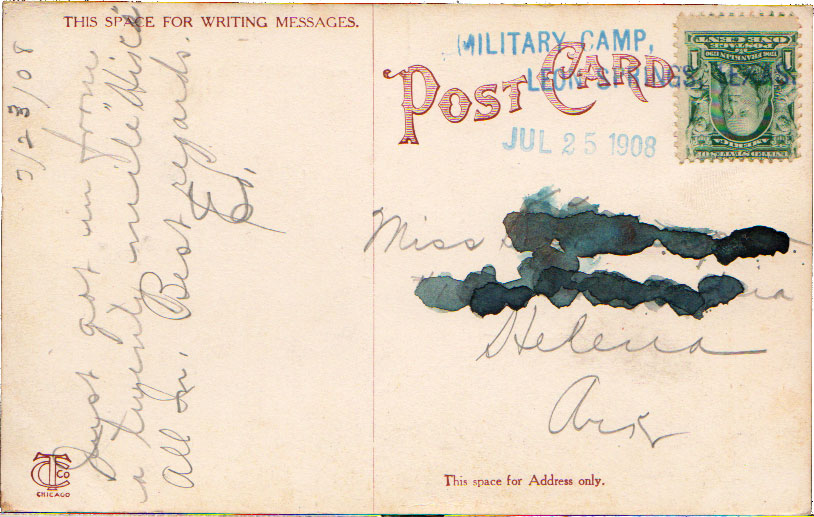 THIS SPACE FOR WRITING MESSAGES.
7/23/08
Just got in from
a twenty mile "Hike"
all In. Best regards.
Ed.
TC Co
CHICAGO
POST CARD
MILITARY CAMP,
LEON SPRINGS, TEXAS
JUL 25 1908
Miss
Helena
Ark
This space for Address only.